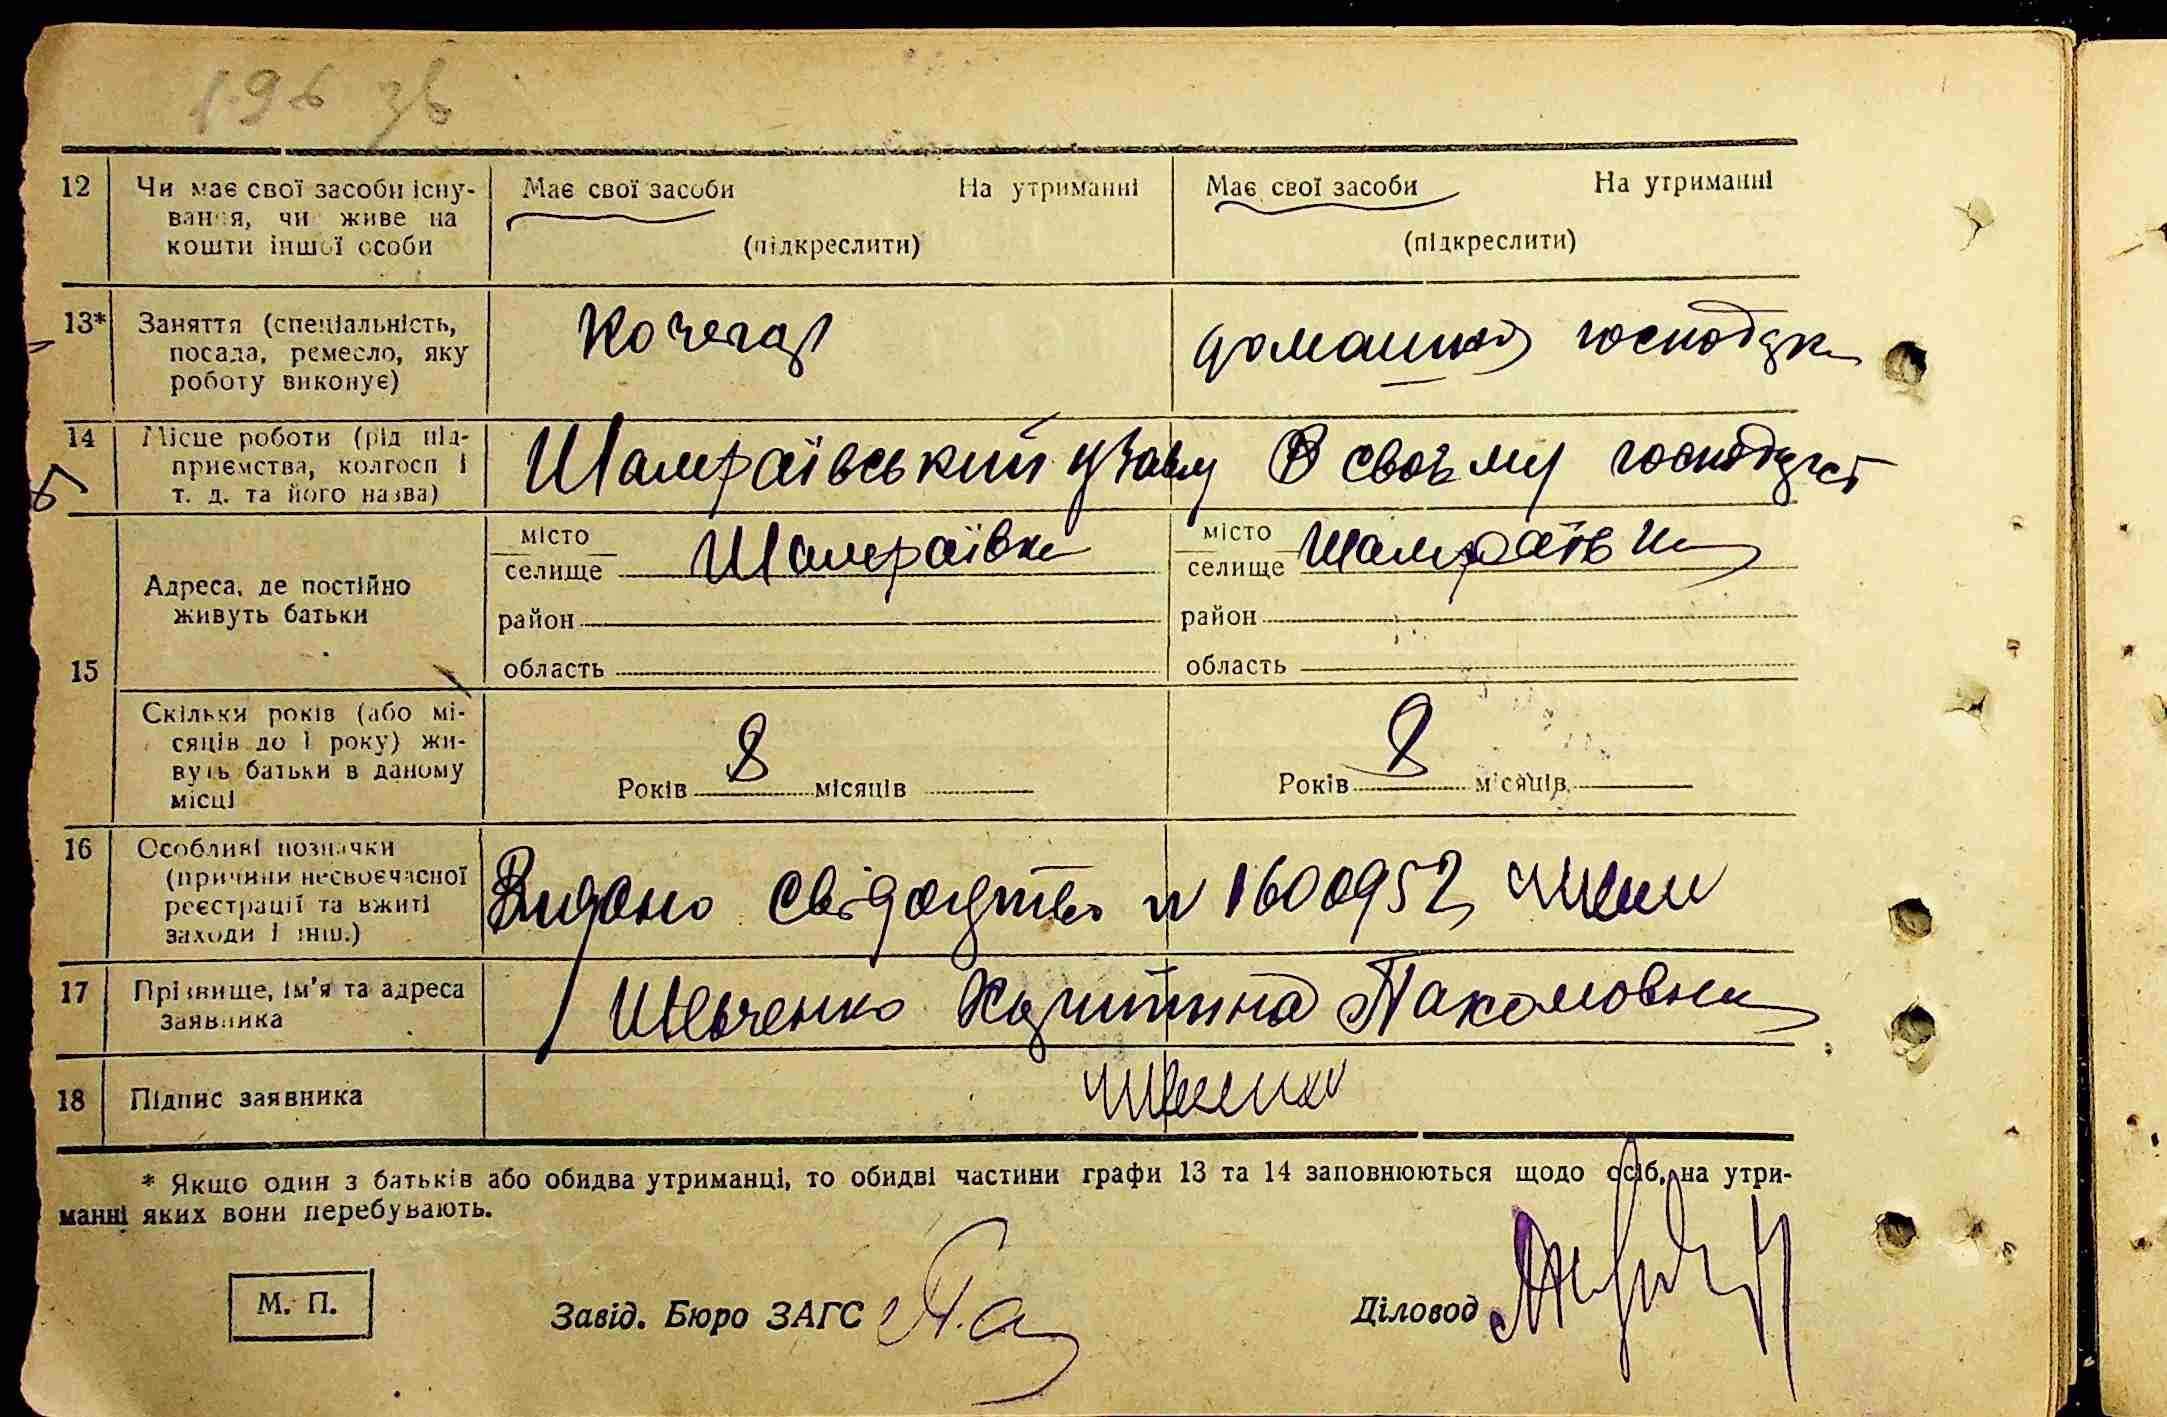 196 зв
12 Чи має свої засоби існу- Має свої засоби На утриманні Має свої засоби На утриманні
вання, чи живе на
кошти іншої особи (підкреслити) (підкреслити)
13* Заняття (спеціальність, Кочегар домашня господарк
посада, ремесло, яку
роботу виконує)
14 Місце роботи (рід під- Шамраївський цзавод В своєму господарст
приємства, колгосп і
т. д. та його назва)
15 Адреса, де постійно
живуть батьки
місто Шамраївка місто Шамраївка
селище селище
район район
область область
Скільки років (або мі-
сяців до 1 року) жи-
вуть батьки в даному
місці
Років 8 місяців Років 8 місяців
16 Особливі позначки
(причини несвоєчасної Видано свідоцтво N 1600952
реєстрації та вжиті
заходи і інш.)
17 Прізвище, ім'я та адреса Шевченко Христина Пахомовна
заявника
18 Підпис заявника
* Якщо один з батьків або обидва утриманці, то обидві частини графи 13 та 14 заповнюються щодо осіб, на утри-
манні яких вони перебувають.
М. П. Завід. Бюро ЗАГС Діловод